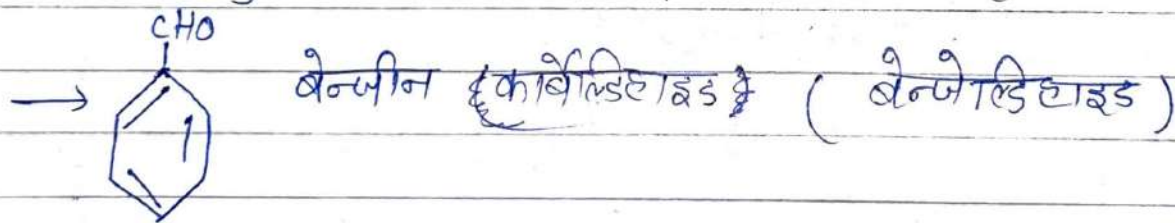 CHO
→ बेन्जीन {कार्बेल्डिहाइड} (बेन्जेल्डिहाइड)